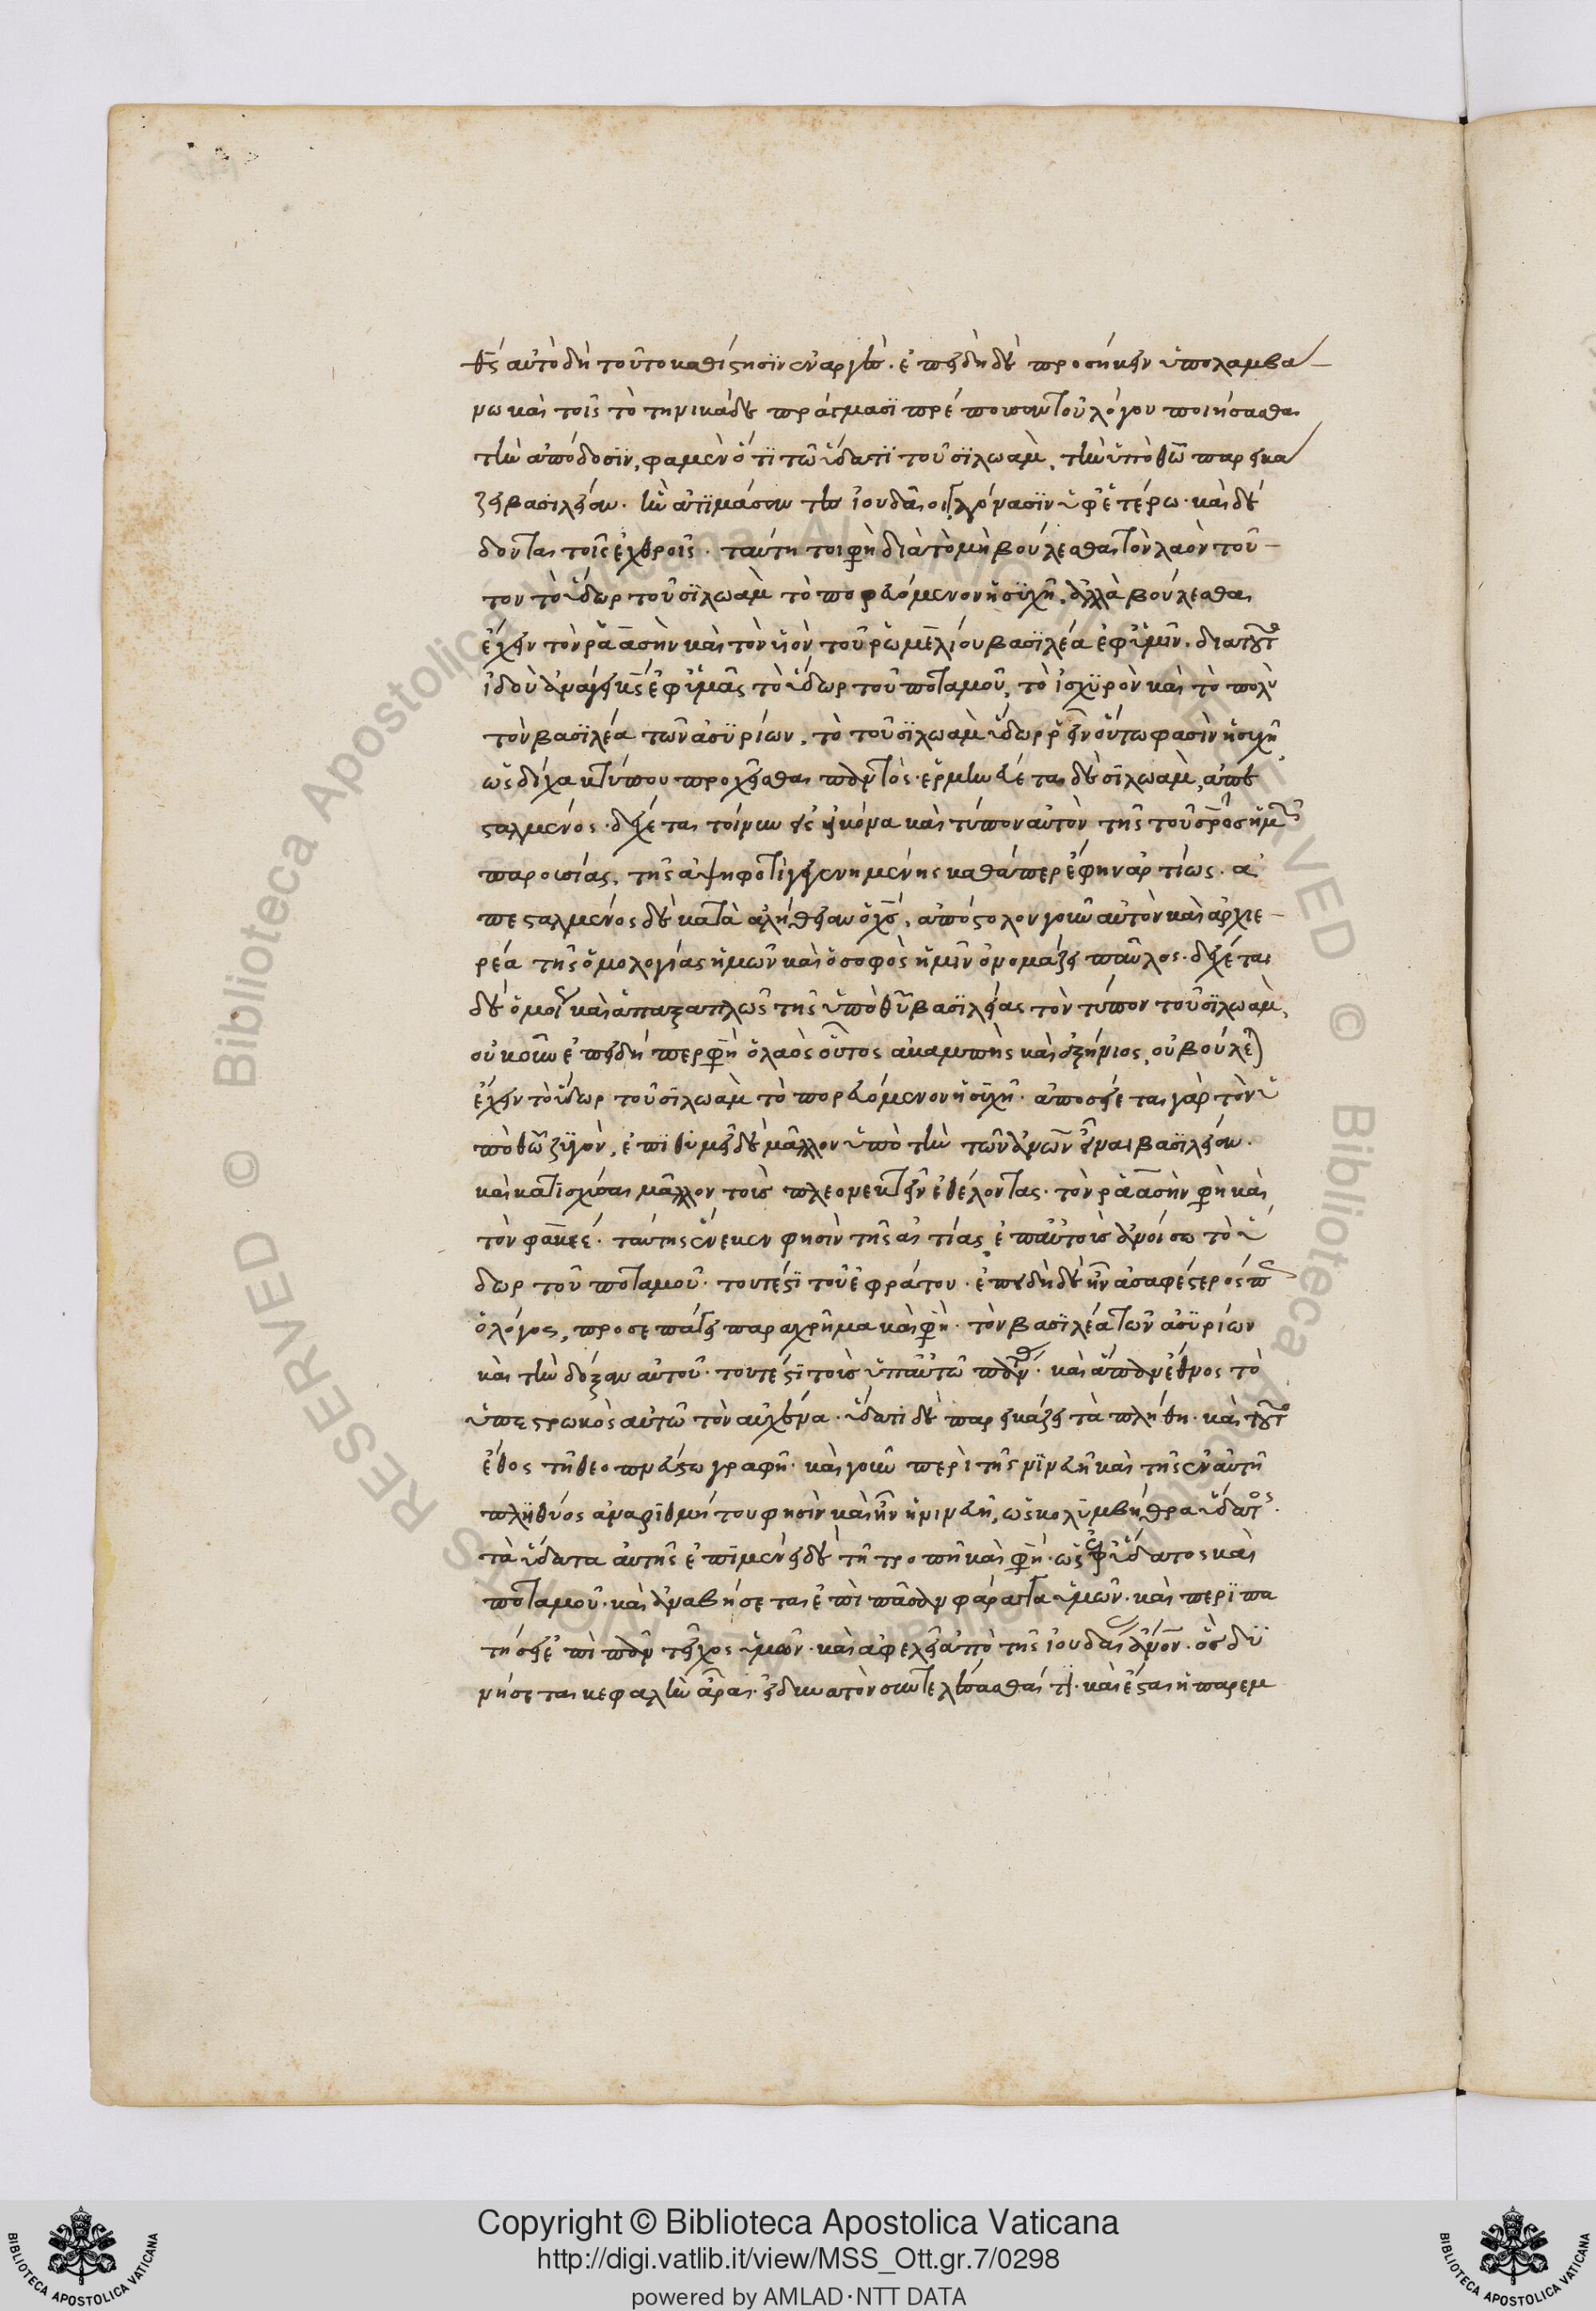 θεὶς αὐτὸ δὴ τοῦτο καθίστησιν ἐναργές. ἐπειδὴ δὲ προσήκειν ὑπολαμβά
νω καὶ τοῖς τὸ τηνικάδε πράγμασι πρέπουσαν τοῦ λόγου ποιήσασθαι
τὴν ἀπόδοσιν, φαμὲν ὅτι τῶ ὕδατι τοῦ σιλωὰμ, τὴν ὑπὸ θεῶ παρεικά
ζει βασιλείαν. ἣν ἀτιμάσαντες ἰουδαῖοι γεγόνασιν ὑφ' ἑτέρω. καὶ δέ
δονται τοῖς ἐχθροῖς. ταύτη τοι φησὶ διὰ τὸ μὴ βούλεσθαι τὸν λαὸν τοῦ
τον τὸ ὕδωρ τοῦ σιλωὰμ τὸ πορευόμενον ἡσυχῆ, ἀλλὰ βούλεσθαι
ἔχειν τὸν ῥαασὴν καὶ τὸν υἱὸν τοῦ ῥωμελίου βασιλέα ἐφ' ὑμῶν. διατοῦτο
ἰδοὺ ἀνάγει κς ἐφ' ὑμᾶς τὸ ὕδωρ τοῦ ποταμοῦ, τὸ ἰσχυρὸν καὶ τὸ πολὺ
τὸν βασιλέα τῶν ἀσυρίων. τὸ τοῦ σιλωὰμ ὕδωρ ῥεῖν οὕτω φασὶν ἡσυχῆ
ὡς δίχα κτύπου προχεῖσθαι παντός. ἑρμηνεύεται δὲ σιλωὰμ, ἀπε
σταλμένος. δέχεται τοίνυν εἰς εἰκόνα καὶ τύπον αὐτὸν τῆς τοῦ σρος ἡμῶν
παρουσίας, τῆς ἀψοφητὶ γεγενημένης καθάπερ ἔφην ἀρτίως. ἀ
πεσταλμένος δὲ κατὰ ἀλήθειαν ὁ χς, ἀπόστολον γοῦν αὐτὸν καὶ ἀρχιε
ρέα τῆς ὁμολογίας ἡμῶν καὶ ὁ σοφὸς ἡμῖν ὀνομάζει παῦλος. δέχεται
δὲ ὁμοῦ καὶ ἅπαξ ἁπλῶς τῆς ὑπὸ θῦ βασιλείας τὸν τύπον τοῦ σιλωὰμ,
οὐκοῦν ἐπειδήπερ φησὶν ὁ λαὸς οὗτος ἀκαμπὴς καὶ ἐξήνιος, οὐ βούλεται
ἔχειν τὸ ὕδωρ τοῦ σιλωὰμ τὸ πορευόμενον ἡσυχῆ. ἀποσείεται γὰρ τὸν ὑ
πὸ θεῶ ζυγὸν, ἐπιθυμεῖ δὲ μᾶλλον ὑπὸ τὴν τῶν ἀνων εἶναι βασιλείαν.
καὶ κατισχύσαι μᾶλλον τοὺς πλεονεκτεῖν ἐθέλοντας. τὸν ῥαασὴν φησὶ καὶ
τὸν φακεέ. ταύτης ἕνεκεν φησὶν τῆς αἰτίας, ἐπ' αὐτοὺς ἀνοίσω τὸ ὕ
δωρ τοῦ ποταμοῦ. τουτέστι τοῦ εὐφράτου. ἐπειδὴ δὲ ἦν ἀσαφέστερός πως
ὁ λόγος, προσεπάγει παραχρῆμα καὶ φησὶ. τὸν βασιλέα τῶν ἀσυρίων
καὶ τὴν δόξαν αὐτοῦ. τουτέστι τοὺς ὑπ' αὐτῶ πάντας. καὶ ἅπαν ἔθνος τὸ
ὑπεστρωκὸς αὐτῶ τὸν αὐχένα. ὕδατι δὲ παρεικάζει τὰ πλήθη. καὶ τοῦτο
ἔθος τῆ θεοπνεύστω γραφῆ. καὶ γοῦν περὶ τῆς νινευῆ καὶ τῆς ἐν αὐτῆ
πληθύος ἀναριθμήτου φησὶν καὶ ἦν ἡ νινευῆ, ὡς κολυμβήθρα ὕδατος.
τὰ ὕδατα αὐτῆς ἐπιμένει δὲ τῆ τροπῆ καὶ φησὶ. ὡς ἐφ' ὕδατος καὶ
ποταμοῦ. καὶ ἀναβήσεται ἐπὶ πᾶσαν φάραγγα ὑμῶν. καὶ περιπα
τήσει ἐπὶ πᾶν τεῖχος ὑμῶν. καὶ ἀφελεῖ ἀπὸ τῆς ἰουδαίας ἄνον. ὃς δυ
νήσεται κεφαλὴν ἆραι. εἰ δυνατὸν συντελέσασθαί τι. καὶ ἔσται ἡ παρεμ
Copyright © Biblioteca Apostolica Vaticana
http://digi.vatlib.it/view/MSS_Ott.gr.7/0298
powered by AMLAD·NTT DATA